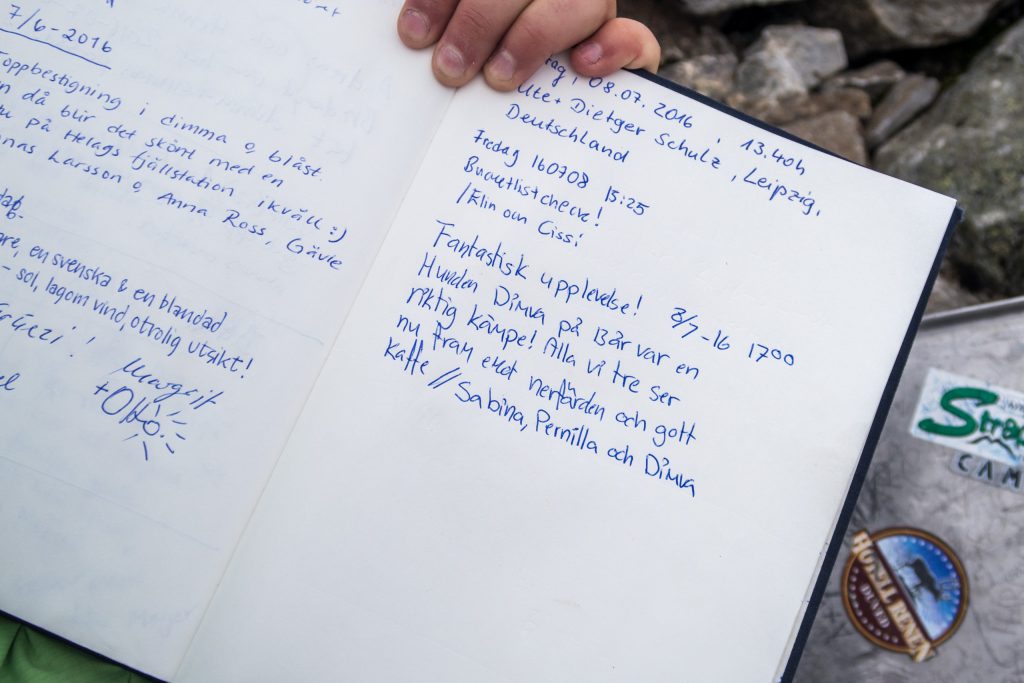 7/6-2016
oppbestigning i dimma o blåst.
då blir det skönt med en
på Helags fjällstation ikväll :)
Larsson o Anna Ross, Gävle
en svenska & en blandad
- sol, lagom vind, otrolig utsikt!
Margrit
+ Otto.
08.07.2016, 13.40h
Ute + Dietger Schulz, Leipzig,
Deutschland
Fredag 160708 15:25
Bucketlistcheck!
/Elin och Cissi
Fantastisk upplevelse! 8/7-16 1700
Hunden Dimva på 13år var en
riktig kämpe! Alla vi tre ser
nu fram emot nerfärden och gott
kaffe // Sabina, Pernilla och Dimva
CAM
HOTELL RENEN